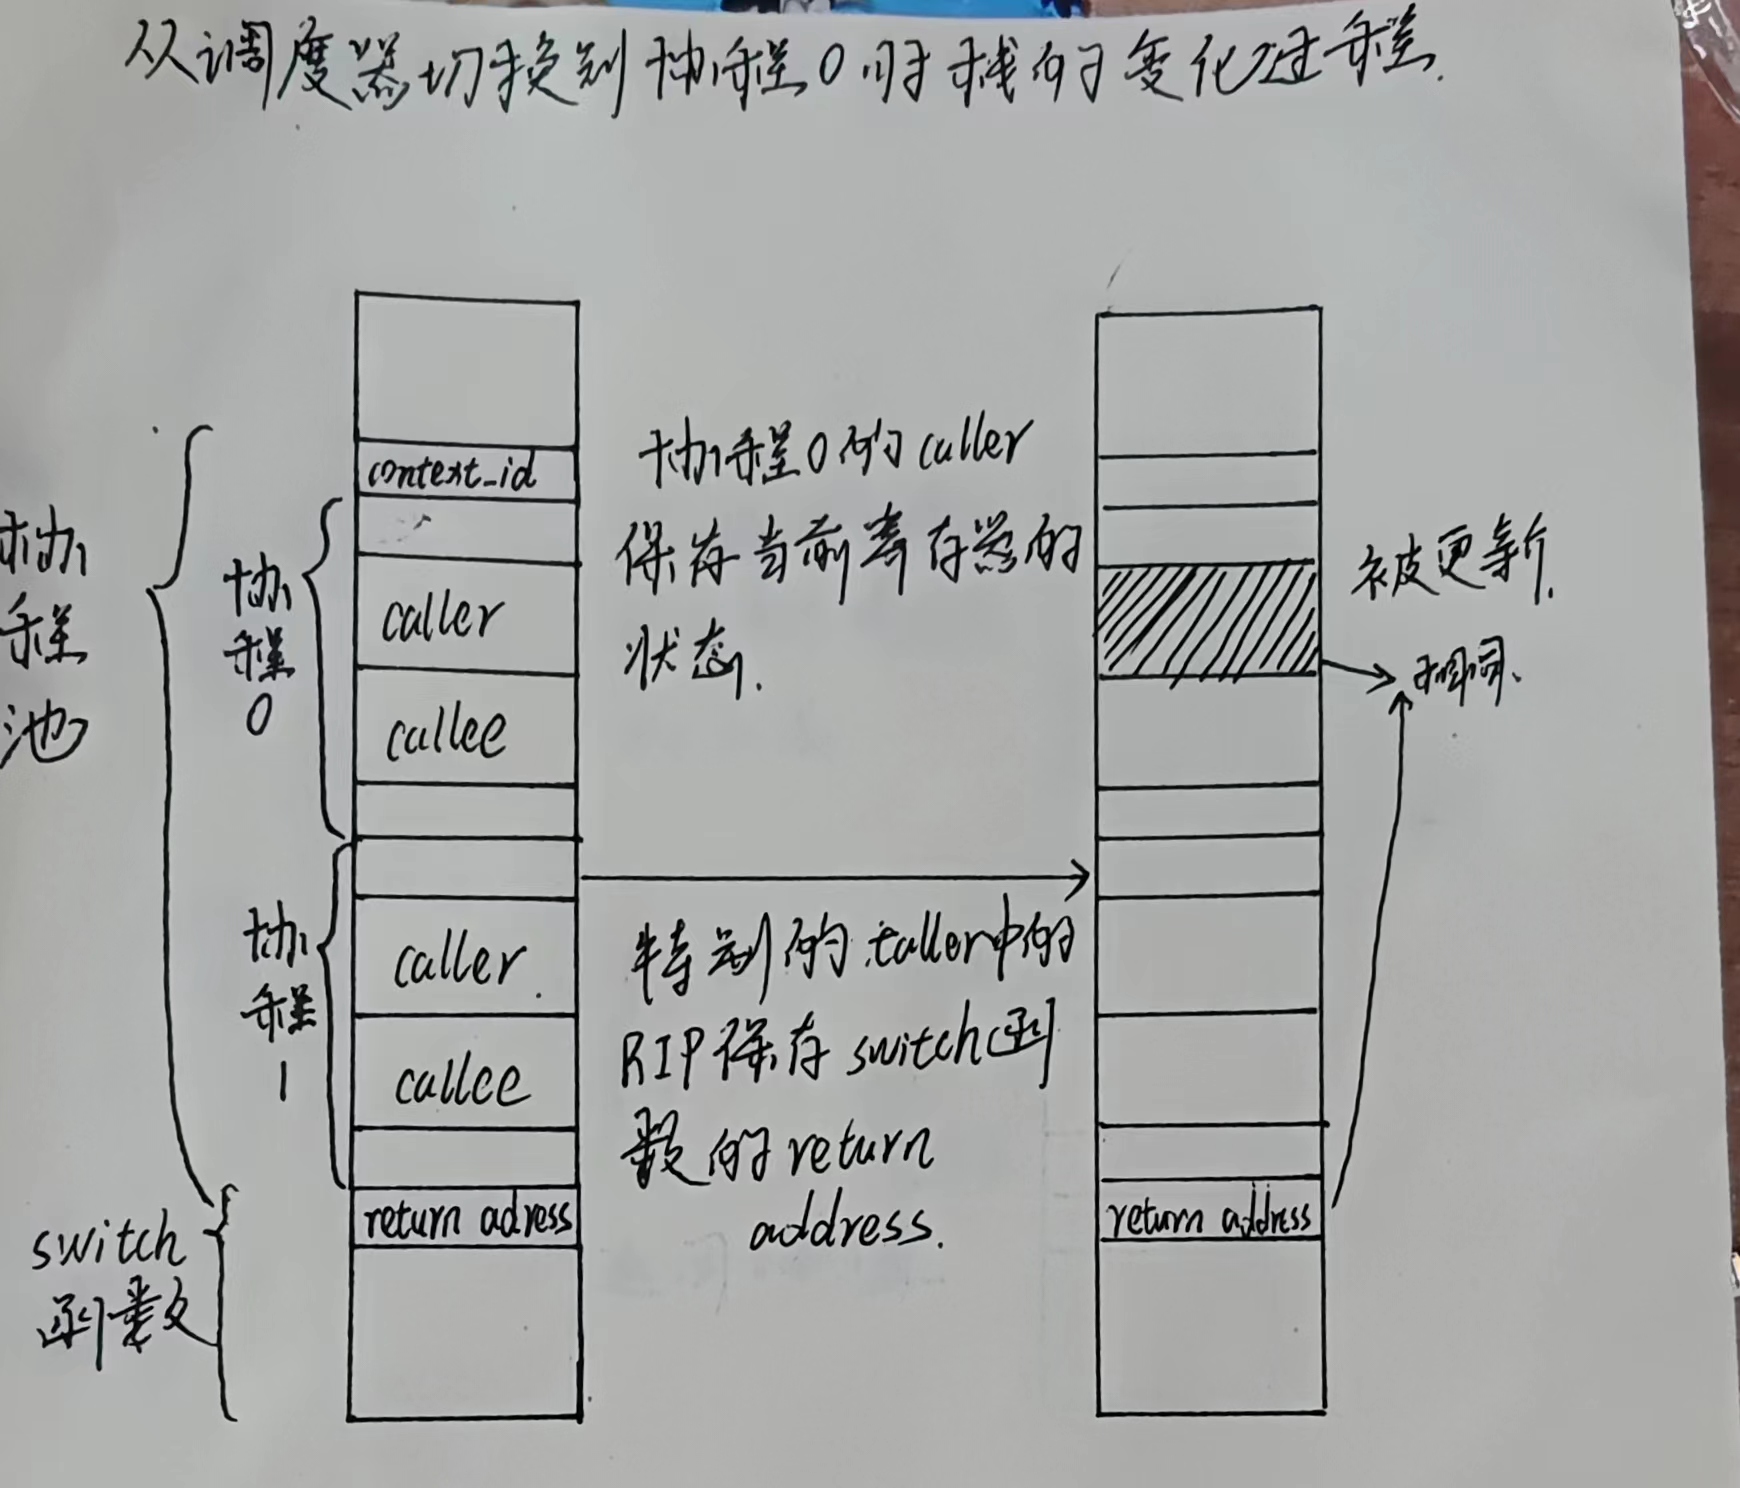 从调度器切换到协程0时栈的变化过程.
协程池
协程0
context_id
caller
callee
协程1
caller.
callee
switch
函数
return adress
协程0的caller
保存当前寄存器的
状态.
特别的.caller中的
RIP保存switch函
数的return
address.
被更新.
相同.
return address